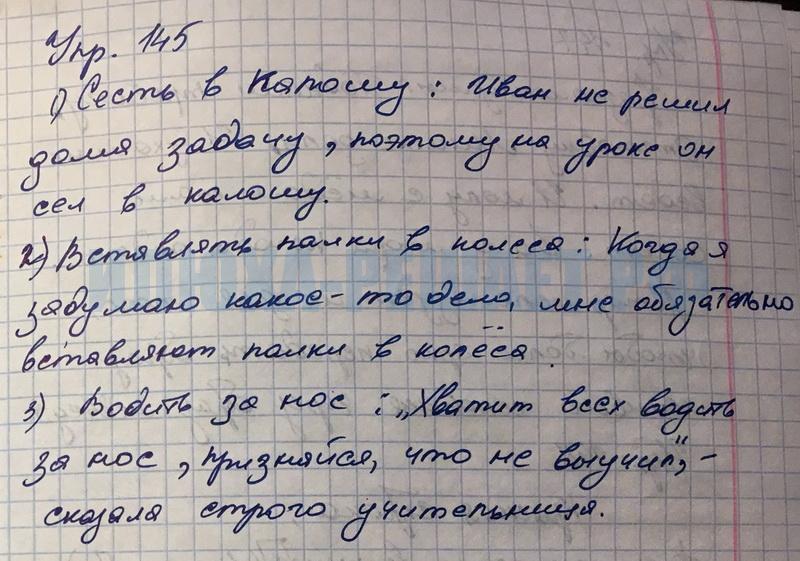 Упр. 145
1) Сесть в Калошу: Иван не решил
дома задачу, поэтому на уроке он
сел в калошу.
2) Вставлять палки в колеса: Когда я
задумаю какое-то дело, мне обязательно
вставляют палки в колёса.
3) Водить за нос: „Хватит всех водить
за нос, признайся, что не выучил", -
сказала строго учительница.